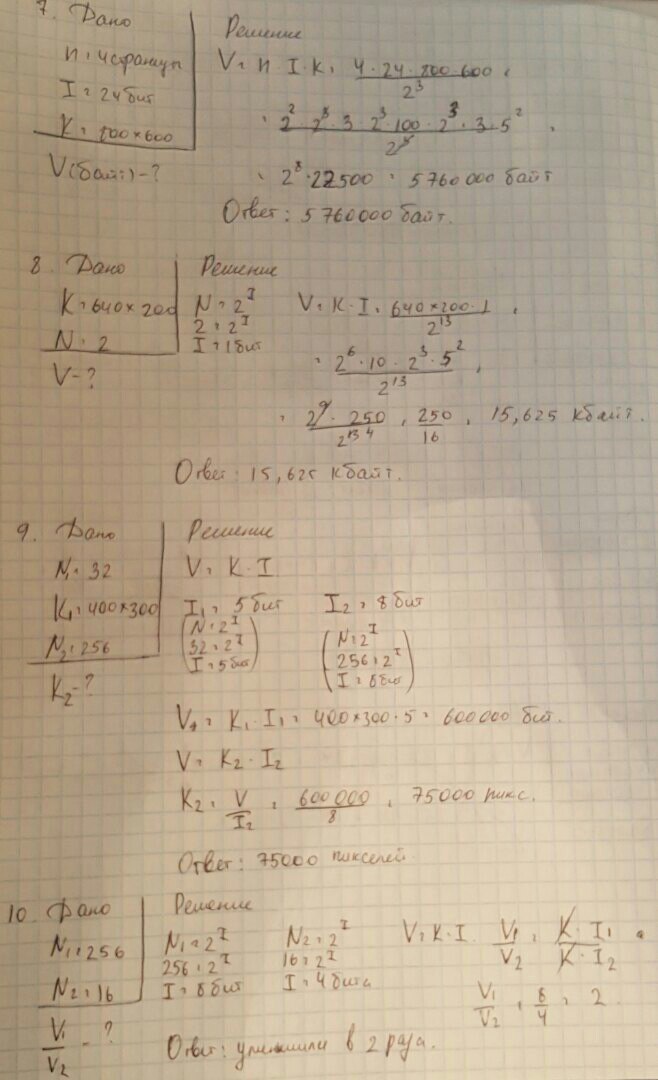 7. Дано
Решение
n = 4 страницы
I = 24 бит
K = 800×600
V(байт) - ?
V = n · I · K = 4 · 24 · 800 · 600 / 2³ =
= 2² · 2³ · 3 · 2³ · 100 · 2³ · 3 · 5² / 2³ =
= 2⁸ · 22500 = 5760000 байт
Ответ: 5760000 байт.
8. Дано
Решение
K = 640×200
N = 2
V - ?
N = 2ᴵ
2 = 2ᴵ
I = 1 бит
V = K · I = 640×200 · 1 / 2¹³ =
= 2⁶ · 10 · 2³ · 5² / 2¹³ =
= 2⁹ · 250 / 2¹³ ⁴ = 250 / 16 = 15,625 кбайт.
Ответ: 15,625 кбайт.
9. Дано
Решение
N₁ = 32
K₁ = 400×300
N₂ = 256
K₂ - ?
V = K · I
I₁ = 5 бит
(N = 2ᴵ
32 = 2ᴵ
I = 5 бит)
I₂ = 8 бит
(N = 2ᴵ
256 = 2ᴵ
I = 8 бит)
V₁ = K₁ · I₁ = 400×300 · 5 = 600000 бит.
V = K₂ · I₂
K₂ = V / I₂ = 600000 / 8 = 75000 пикс.
Ответ: 75000 пикселей
10. Дано
Решение
N₁ = 256
N₂ = 16
V₁ / V₂ - ?
N₁ = 2ᴵ
256 = 2ᴵ
I = 8 бит
N₂ = 2ᴵ
16 = 2ᴵ
I = 4 бита
V = K · I
V₁ / V₂ = K · I₁ / K · I₂ =
V₁ / V₂ = 8 / 4 = 2.
Ответ: уменьшили в 2 раза.